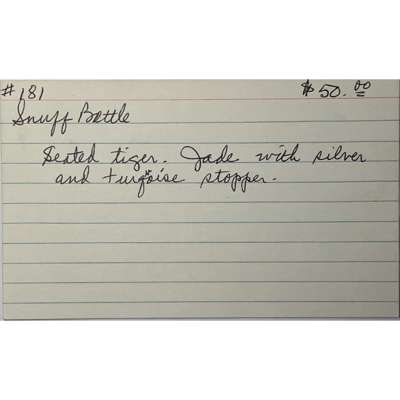 #181 $50.00
Snuff Bottle
Seated tiger. Jade with silver
and turqoise stopper.